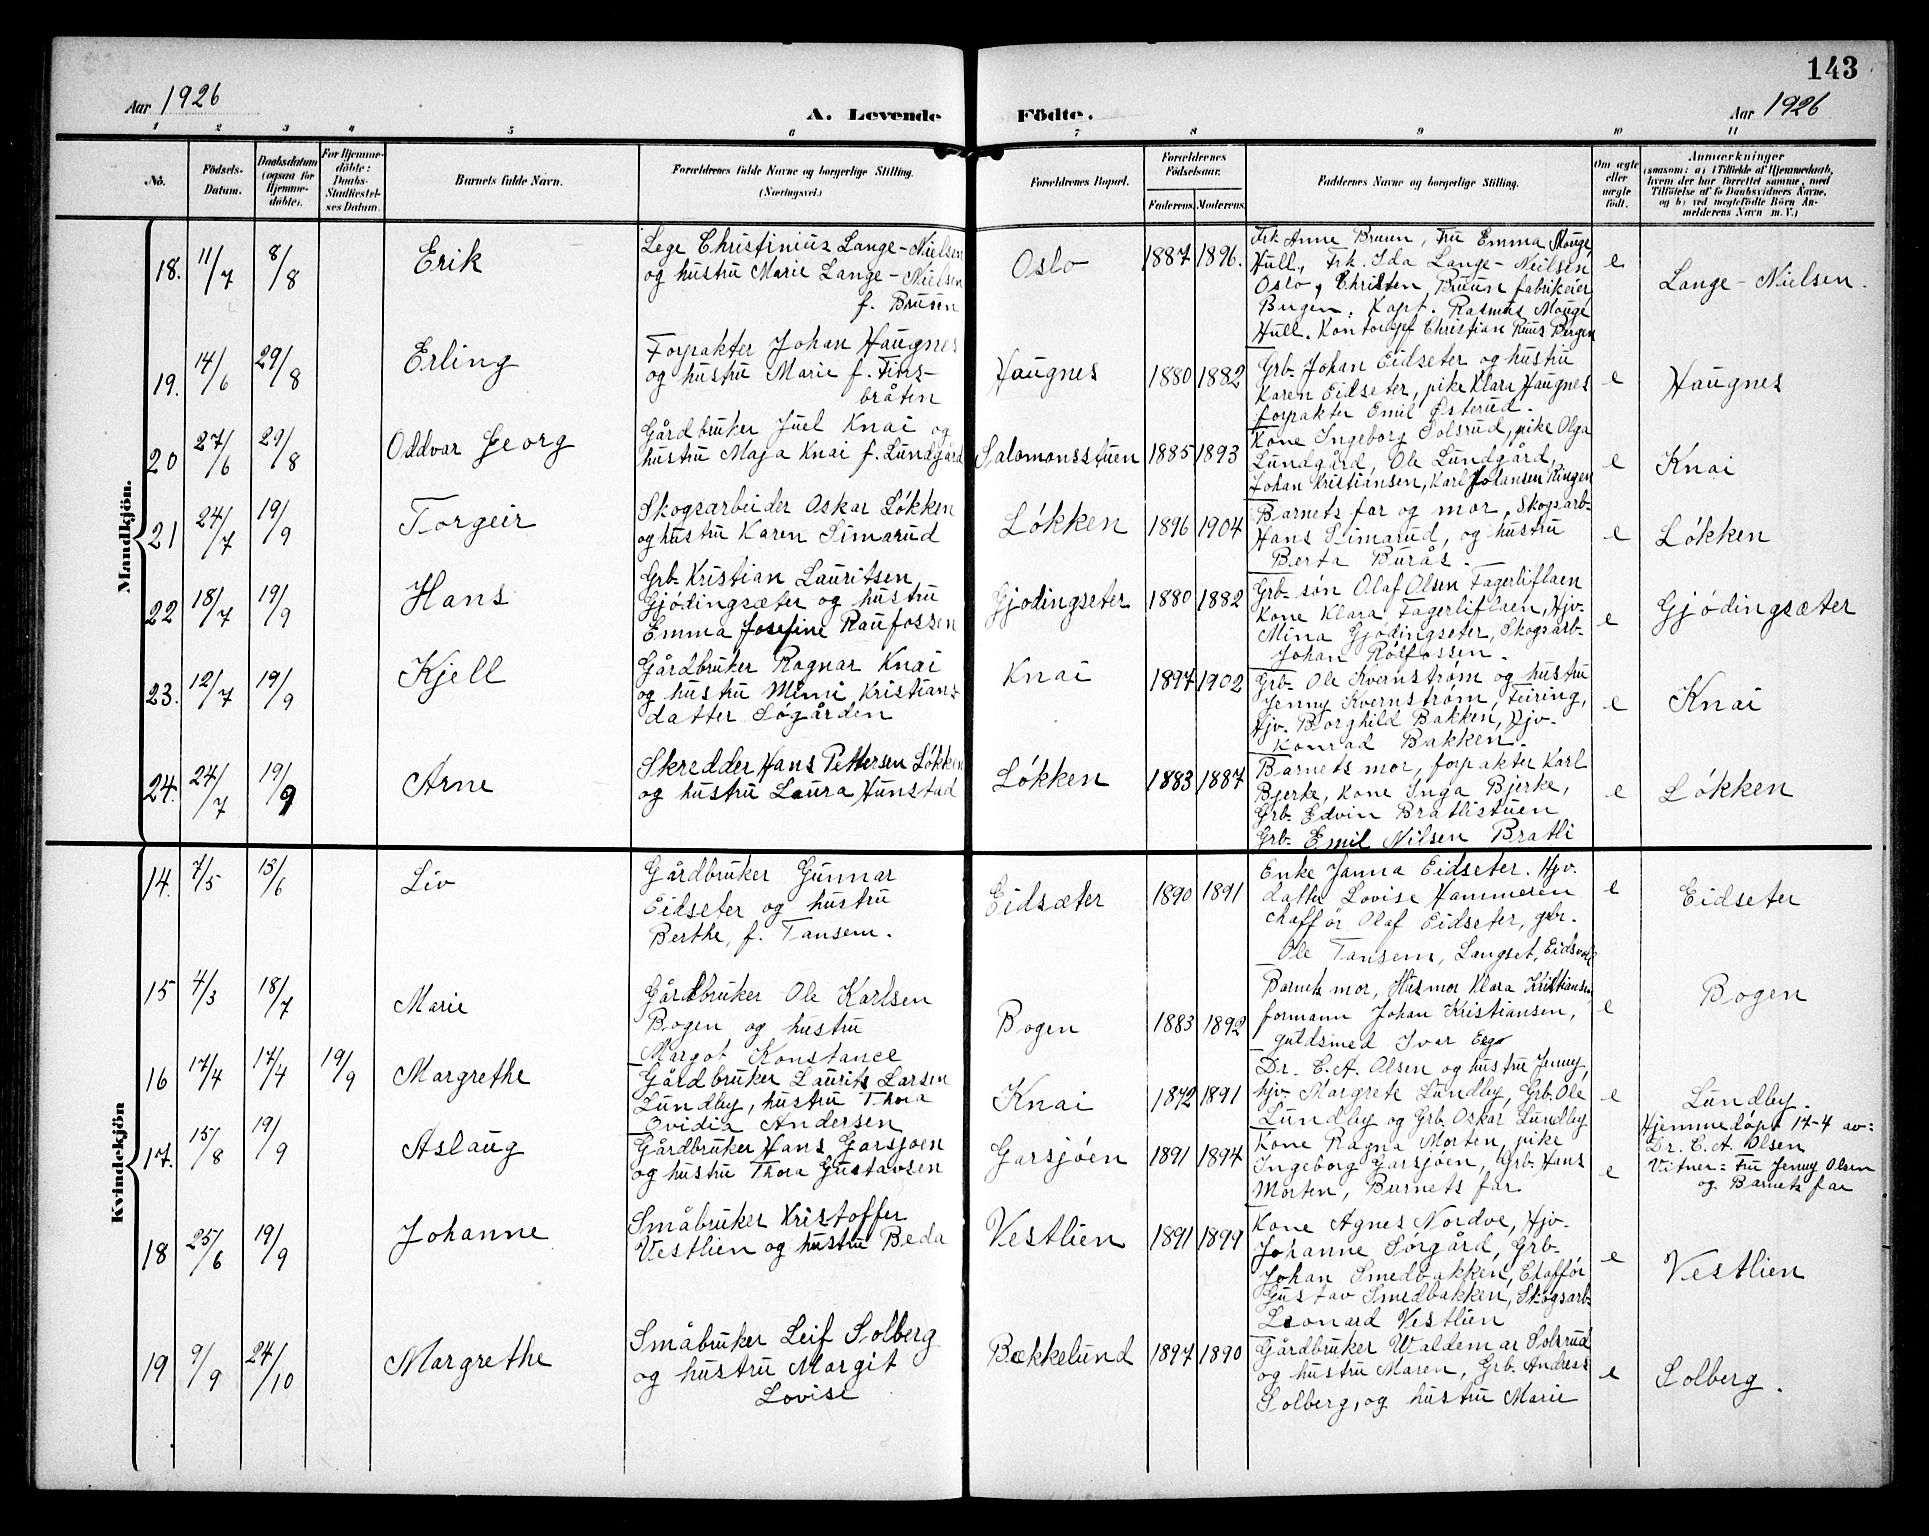 143
Aar 1926
A. Levende Födte.
Aar 1926
1 2 3 4 5 6 7 8 9 10 11
No.
Födsels-
Datum.
Daabsdatum
(ogsaa for
Hjemme-
döbte).
For Hjemme-
döbte:
Daabs-
Stadfæstel-
ses Datum.
Barnets fulde Navn.
Forældrenes fulde Navne og borgerlige Stilling.
(Næringsvei.)
Forældrenes Bopæl.
Forældrenes
Födselsaar.
Faderens. Moderens.
Faddernes Navne og borgerlige Stilling.
Om ægte
eller
uægte
födt.
Anmærkninger
(saasom: a) i Tilfælde af Hjemmedaab,
hvem der har forrettet samme, med
Tilföielse af to Daabsvidners Navne,
og b) ved uægtefödte Börn An-
melderens Navn m. V.)
Mandkjön.
18. 11/7 8/8 Erik
Lege Christinius Lange-Nielsen
og hustru Marie Lange-Nielsen
f. Bruun
Oslo 1887 1896.
Frk Anne Bruun, Fru Emma Mouge
Hull, Frk. Ida Lange-Neilsen
Oslo, Christen Bruun fabrikeier
Bergen. Kapt. Rasmus Mouge
Hull. Kontorspf Christian Ruus Bergen
e Lange-Nielsen.
19. 14/6 29/8 Erling
Forpakter Johan Haugnes
og hustru Marie f. Fins-
bråten
Haugnes 1880 1882
Grb. Johan Eidseter og hustru
Karen Eidseter, pike Klara Haugnes
forpakter Emil Østerud.
e Haugnes
20 27/6 29/8 Oddvar Georg
Gårdbruker Juel Knai og
hustru Maja Knai f. Lundgård
Salomonsstuen 1885 1893
Kone Ingeborg Solsrud, pike Olga
Lundgård, Ole Lundgård,
Johan Kristiansen, Karl Johansen Ringen
e Knai
21 24/7 19/9 Torgeir
Skogsarbeider Oskar Løkken
og hustru Karen Simarud
Løkken 1896 1904
Barnets far og mor, Skogsarb-
Hans Simarud, og hustru
Berta Burås.
e Løkken
22 18/7 19/9 Hans
Grb- Kristian Lauritsen,
Gjødingsæter og hustru
Emma Josefine Raufossen
Gjødingseter 1880 1882
Grb- søn Olaf Olsen Fagerliflaen
Kone Klara Fagerliflaen, Hjv-
Mina Gjødingseter, Skogsarb-
Johan Rolfossen.
e Gjødingsæter
23. 12/7 19/9 Kjell
Gårdbruker Ragnar Knai
og hustru Mimi Kristians-
datter Søgården
Knai 1897 1902
Grb- Ole Kvernstrøm og hustru
Jenny Kvernstrøm, Feiring,
Hjv. Borghild Bakken, Hjv-
Konrad Bakken.
e Knai
24. 24/7 19/9 Arne
Skredder Hans Pettersen Løkken
og hustru Laura Hunstad
Løkken 1883 1887
Barnets mor, forpakter Karl
Bjerke, Kone Inga Bjerke,
Grb- Edvin Bratlistuen
Grb- Emil Nilsen Bratli
e Løkken
Kvindekjön
14. 7/5 13/6 Liv
Gårdbruker Gunnar
Eidseter og hustru
Berthe, f. Tansem.
Eidsæter 1890 1891
Enke Janna Eidseter. Hjv.
datter Lovise Hammeren
chafför Olaf Eidseter, gbr.
Ole Tansem, Langset, Eidsvoll
e Eidseter
15 4/3 18/7 Marie
Gårdbruker Ole Karlsen
Bogen og hustru
Margot Konstance
Bogen 1883 1892
Barnets mor, Husmor Klara Kristiansen
formann Johan Kristiansen,
guldsmed Ivar Eego
e Bogen
16 17/4 17/4 19/9 Margrethe
Gårdbruker Laurits Larsen
Lundby, hustru Thora
Ovidia Andersen
Knai 1872 1891
Dr. C.A. Olsen og hustru Jenny
hjv- Margrete Lundby, Grb. Ole
Lundby og Grb. Oskar Lundby
e Lundby.
Hjemmedøpt 17-4 av:
Dr. C. A. Olsen
Vitner= Fru Jenny Olsen
og Barnets far
17. 15/8 19/9 Aslaug
Gårdbruker Hans Garsjøen
og hustru Thora Gustavsen
Garsjøen 1891 1894
Kone Ragna Morten, pike
Ingeborg Garsjøen, Grb. Hans
Morten, Barnets far
e
18 25/6 19/9 Johanne
Småbruker Kristoffer
Vestlien og hustru Beda
Vestlien 1891 1899
Kone Agnes Nordve, Hjv-
Johanne Sørgård, Grb-
Johan Smedbakken, Chaffør
Gustav Smedbakken, Skogsarb-
Leonard Vestlien
e Vestlien
19 9/9 24/10 Margrethe
Småbruker Leif Solberg
og hustru Margit
Lovise
Bækkelund 1897 1890
Gårdbruker Waldemar Solsrud
og hustru Maren, Grb. Andreas
Solberg, og hustru Marie
e Solberg.